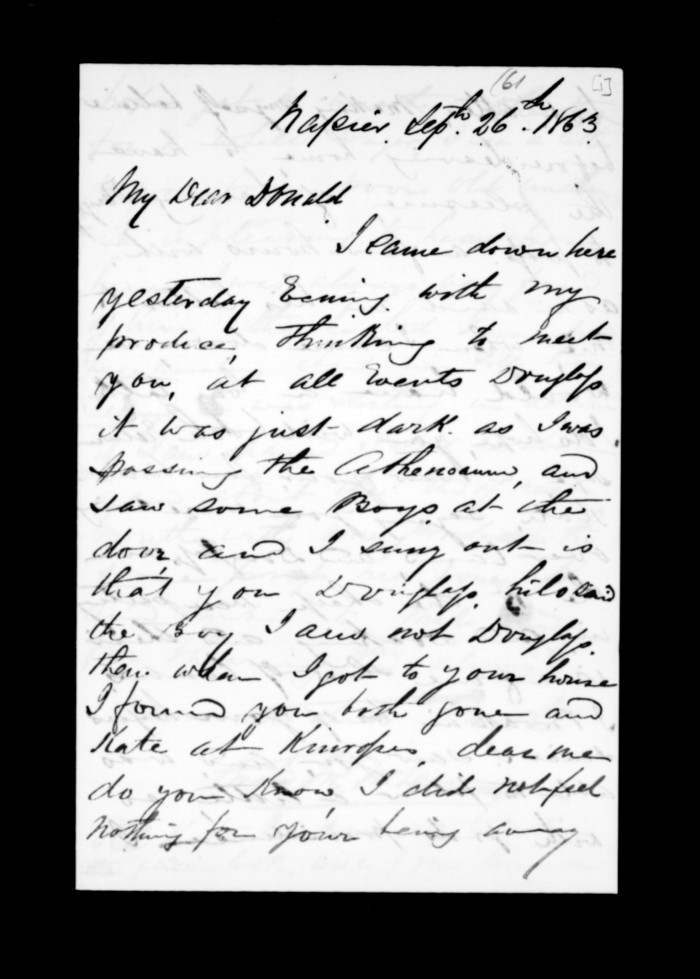 (61 [1]
Napier. Septh. 26th. 1863
My Dear Donald
I came down here
yesterday Evening. with my
produce, thinking to meet
you, at all Events Douglas
it was just dark. as I was
passing the Atheneaum, and
saw some Boys. at the
door, and I sung out is
that you Douglas. hilo said
the Boy I am not Douglas.
then when I got to your house
I found you both gone and
Kate at Kinross, dear me
do you Know I did not feel
nothing for your being away